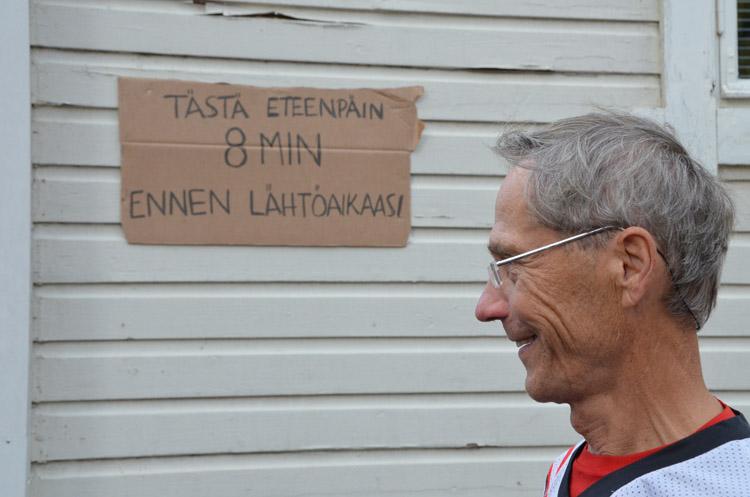 TÄSTÄ ETEENPÄIN
8 MIN
ENNEN LÄHTÖAIKAASI